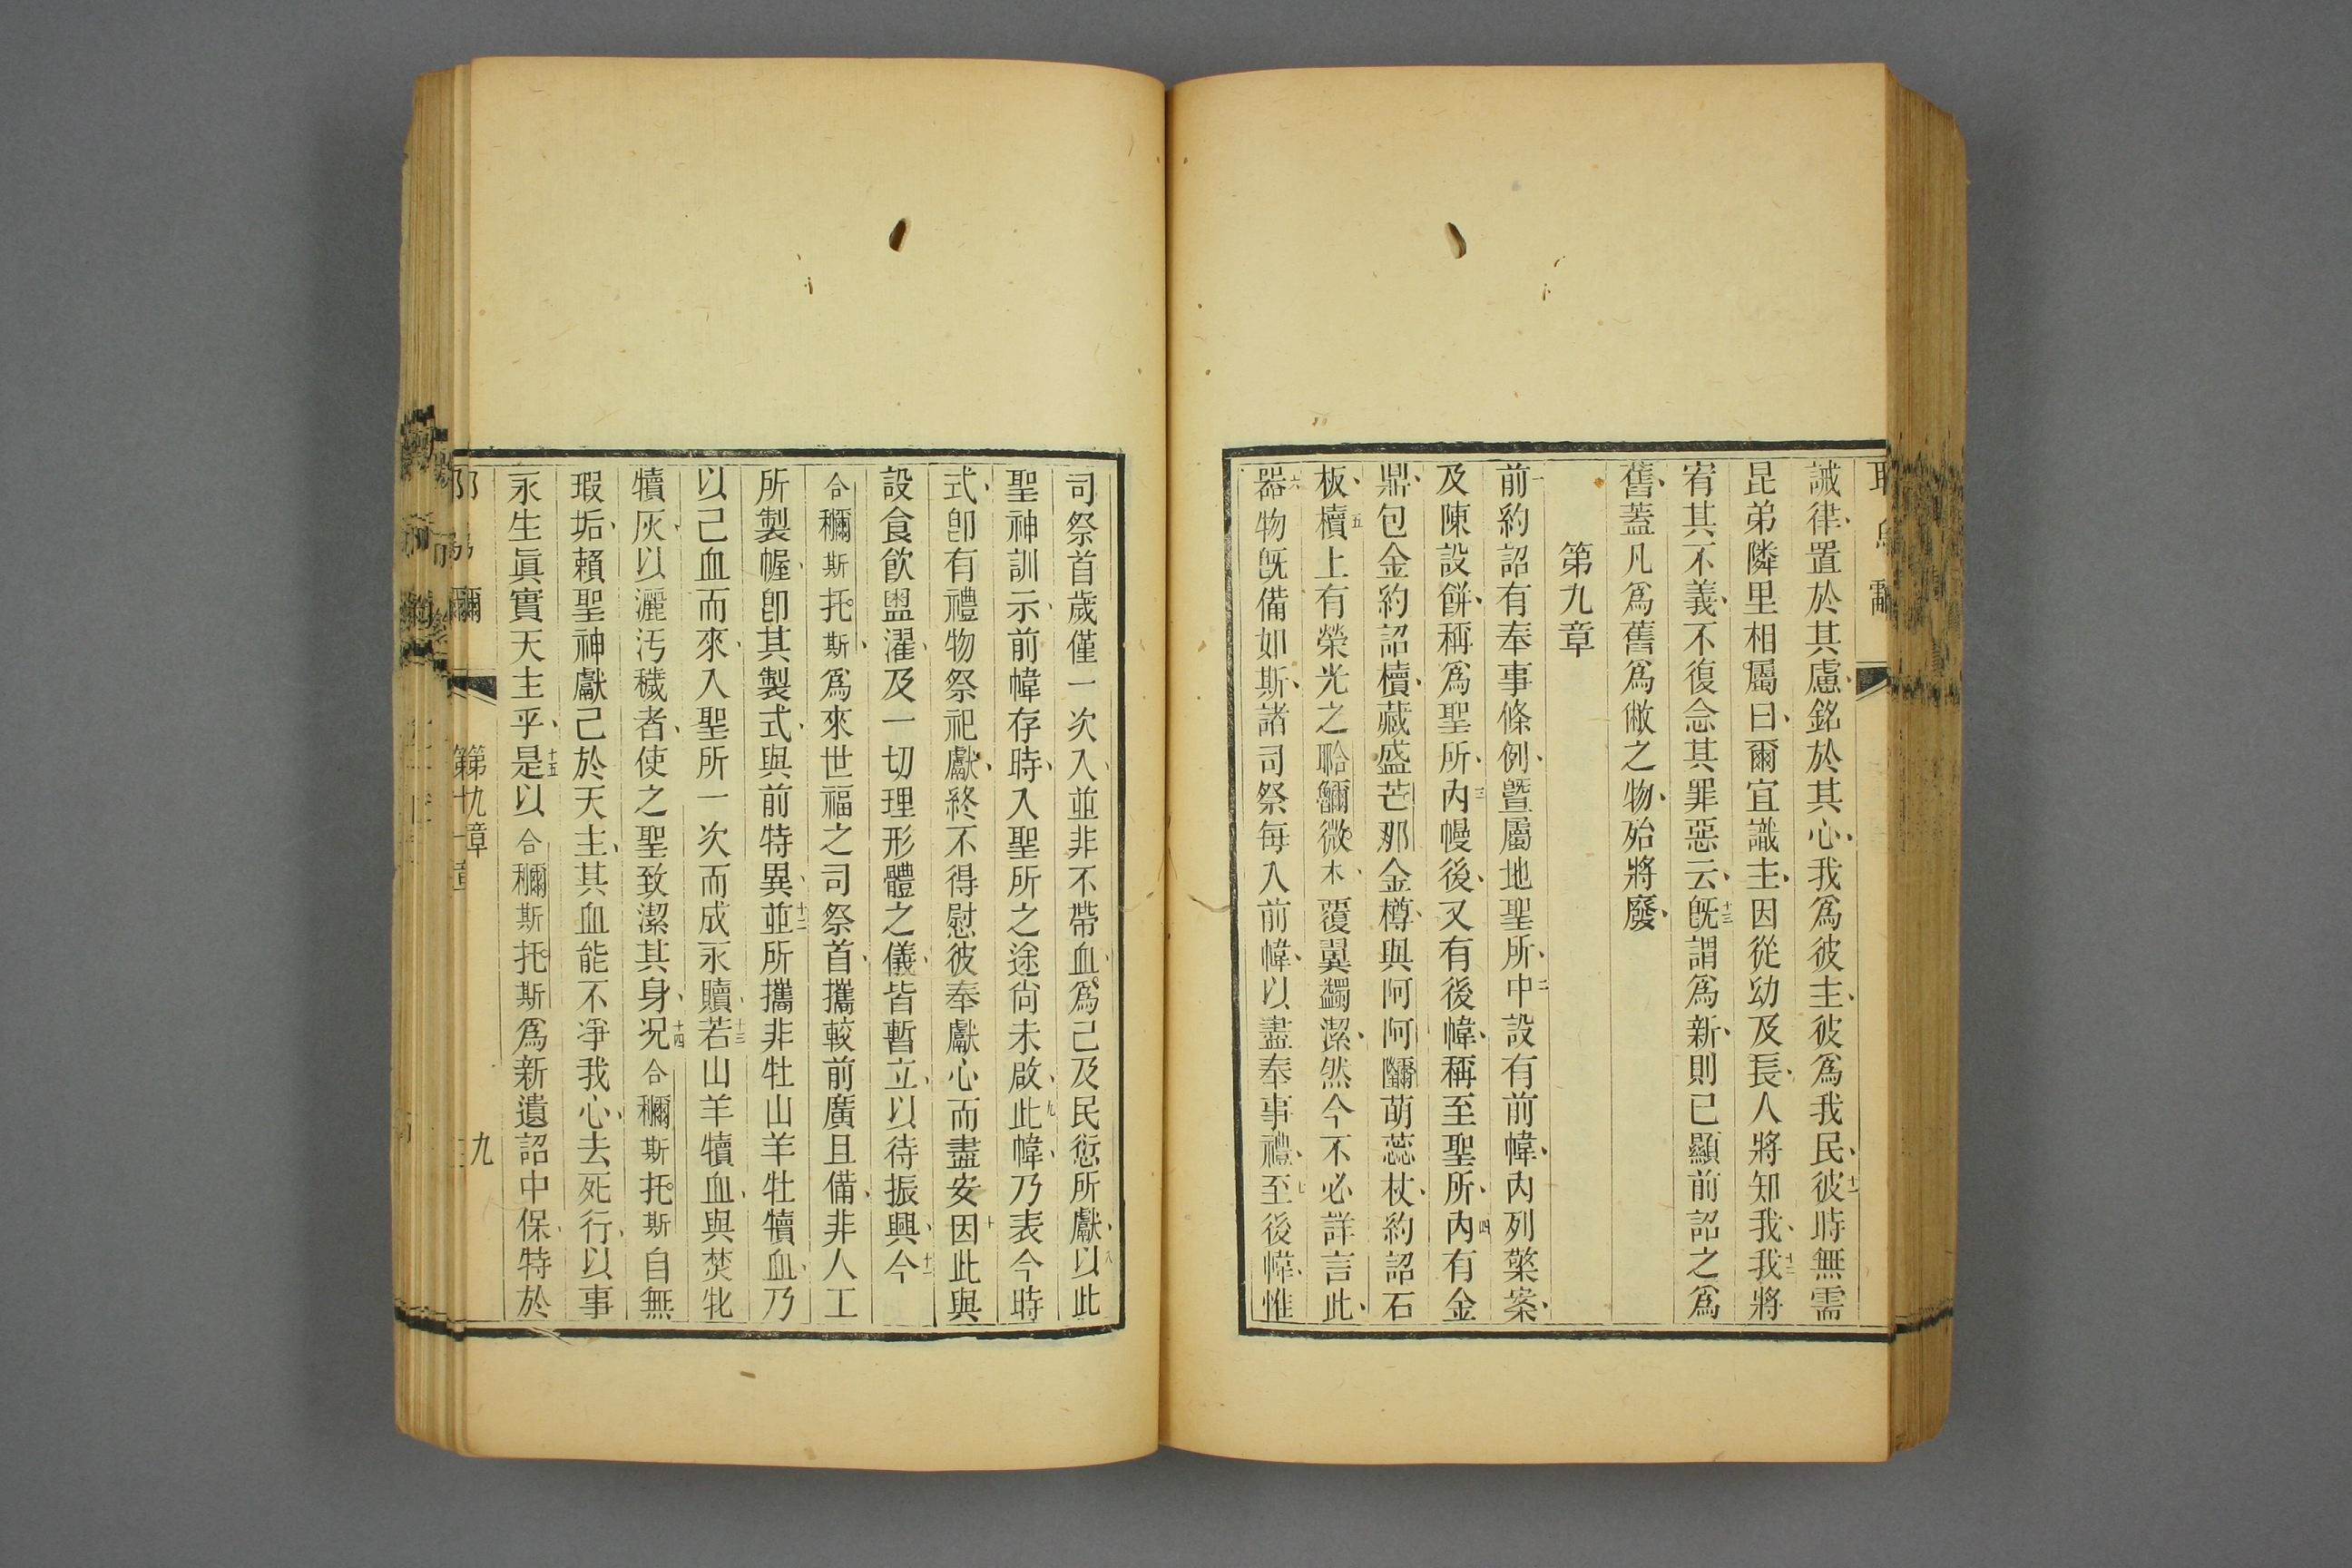 誡律、置於其慮、銘於其心、我爲彼主、彼爲我民、十一彼時無需
昆弟隣里相屬曰、爾宜識主、因從幼及長、人將知我、十二我將
宥其不義、不復念其罪惡云、十三旣謂爲新、則已顯前詔之爲
舊、蓋凡爲舊爲敝之物、殆將廢、
第九章
一前約詔有奉事條例、曁屬地聖所、二中設有前幃、內列檠案、
及陳設餅、稱爲聖所、三內幔後、又有後幃、稱至聖所、四內有金
鼎、包金約詔櫝、藏盛芒那金樽、與阿阿隬萌蕊杖、約詔石
板、五櫝上有榮光之 微木、覆翼蠲潔、然今不必詳言此、
六器物旣備如斯、諸司祭每入前幃、以盡奉事禮、七至後幃、惟
司祭首歲僅一次入、並非不帶血、爲己及民愆所獻、八以此
聖神訓示、前幃存時、入聖所之途尙未啟、九此幃、乃表今時
式、卽有禮物祭祀獻、終不得慰彼奉獻心而盡安、十因此與
設食飲盥濯、及一切理形體之儀、皆暫立、以待振興、十一今
合穪斯托斯、爲來世福之司祭首、攜較前廣且備、非人工
所製幄、卽其製式、與前特異、十二並所攜非牡山羊牡犢血、乃
以己血而來、入聖所一次而成永贖、十三若山羊犢血、與焚牝
犢灰、以灑汚穢者、使之聖致潔其身、十四况合穪斯托斯自無
瑕垢、賴聖神獻己於天主、其血能不凈我心、去死行、以事
永生眞實天主乎、十五是以合穪斯托斯爲新遺詔中保、特於
第九章
九